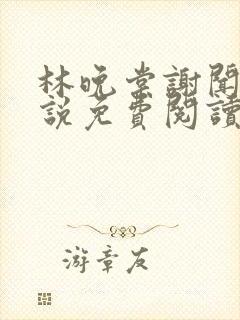 林晚棠謝聞
說免費閱讀
游章友